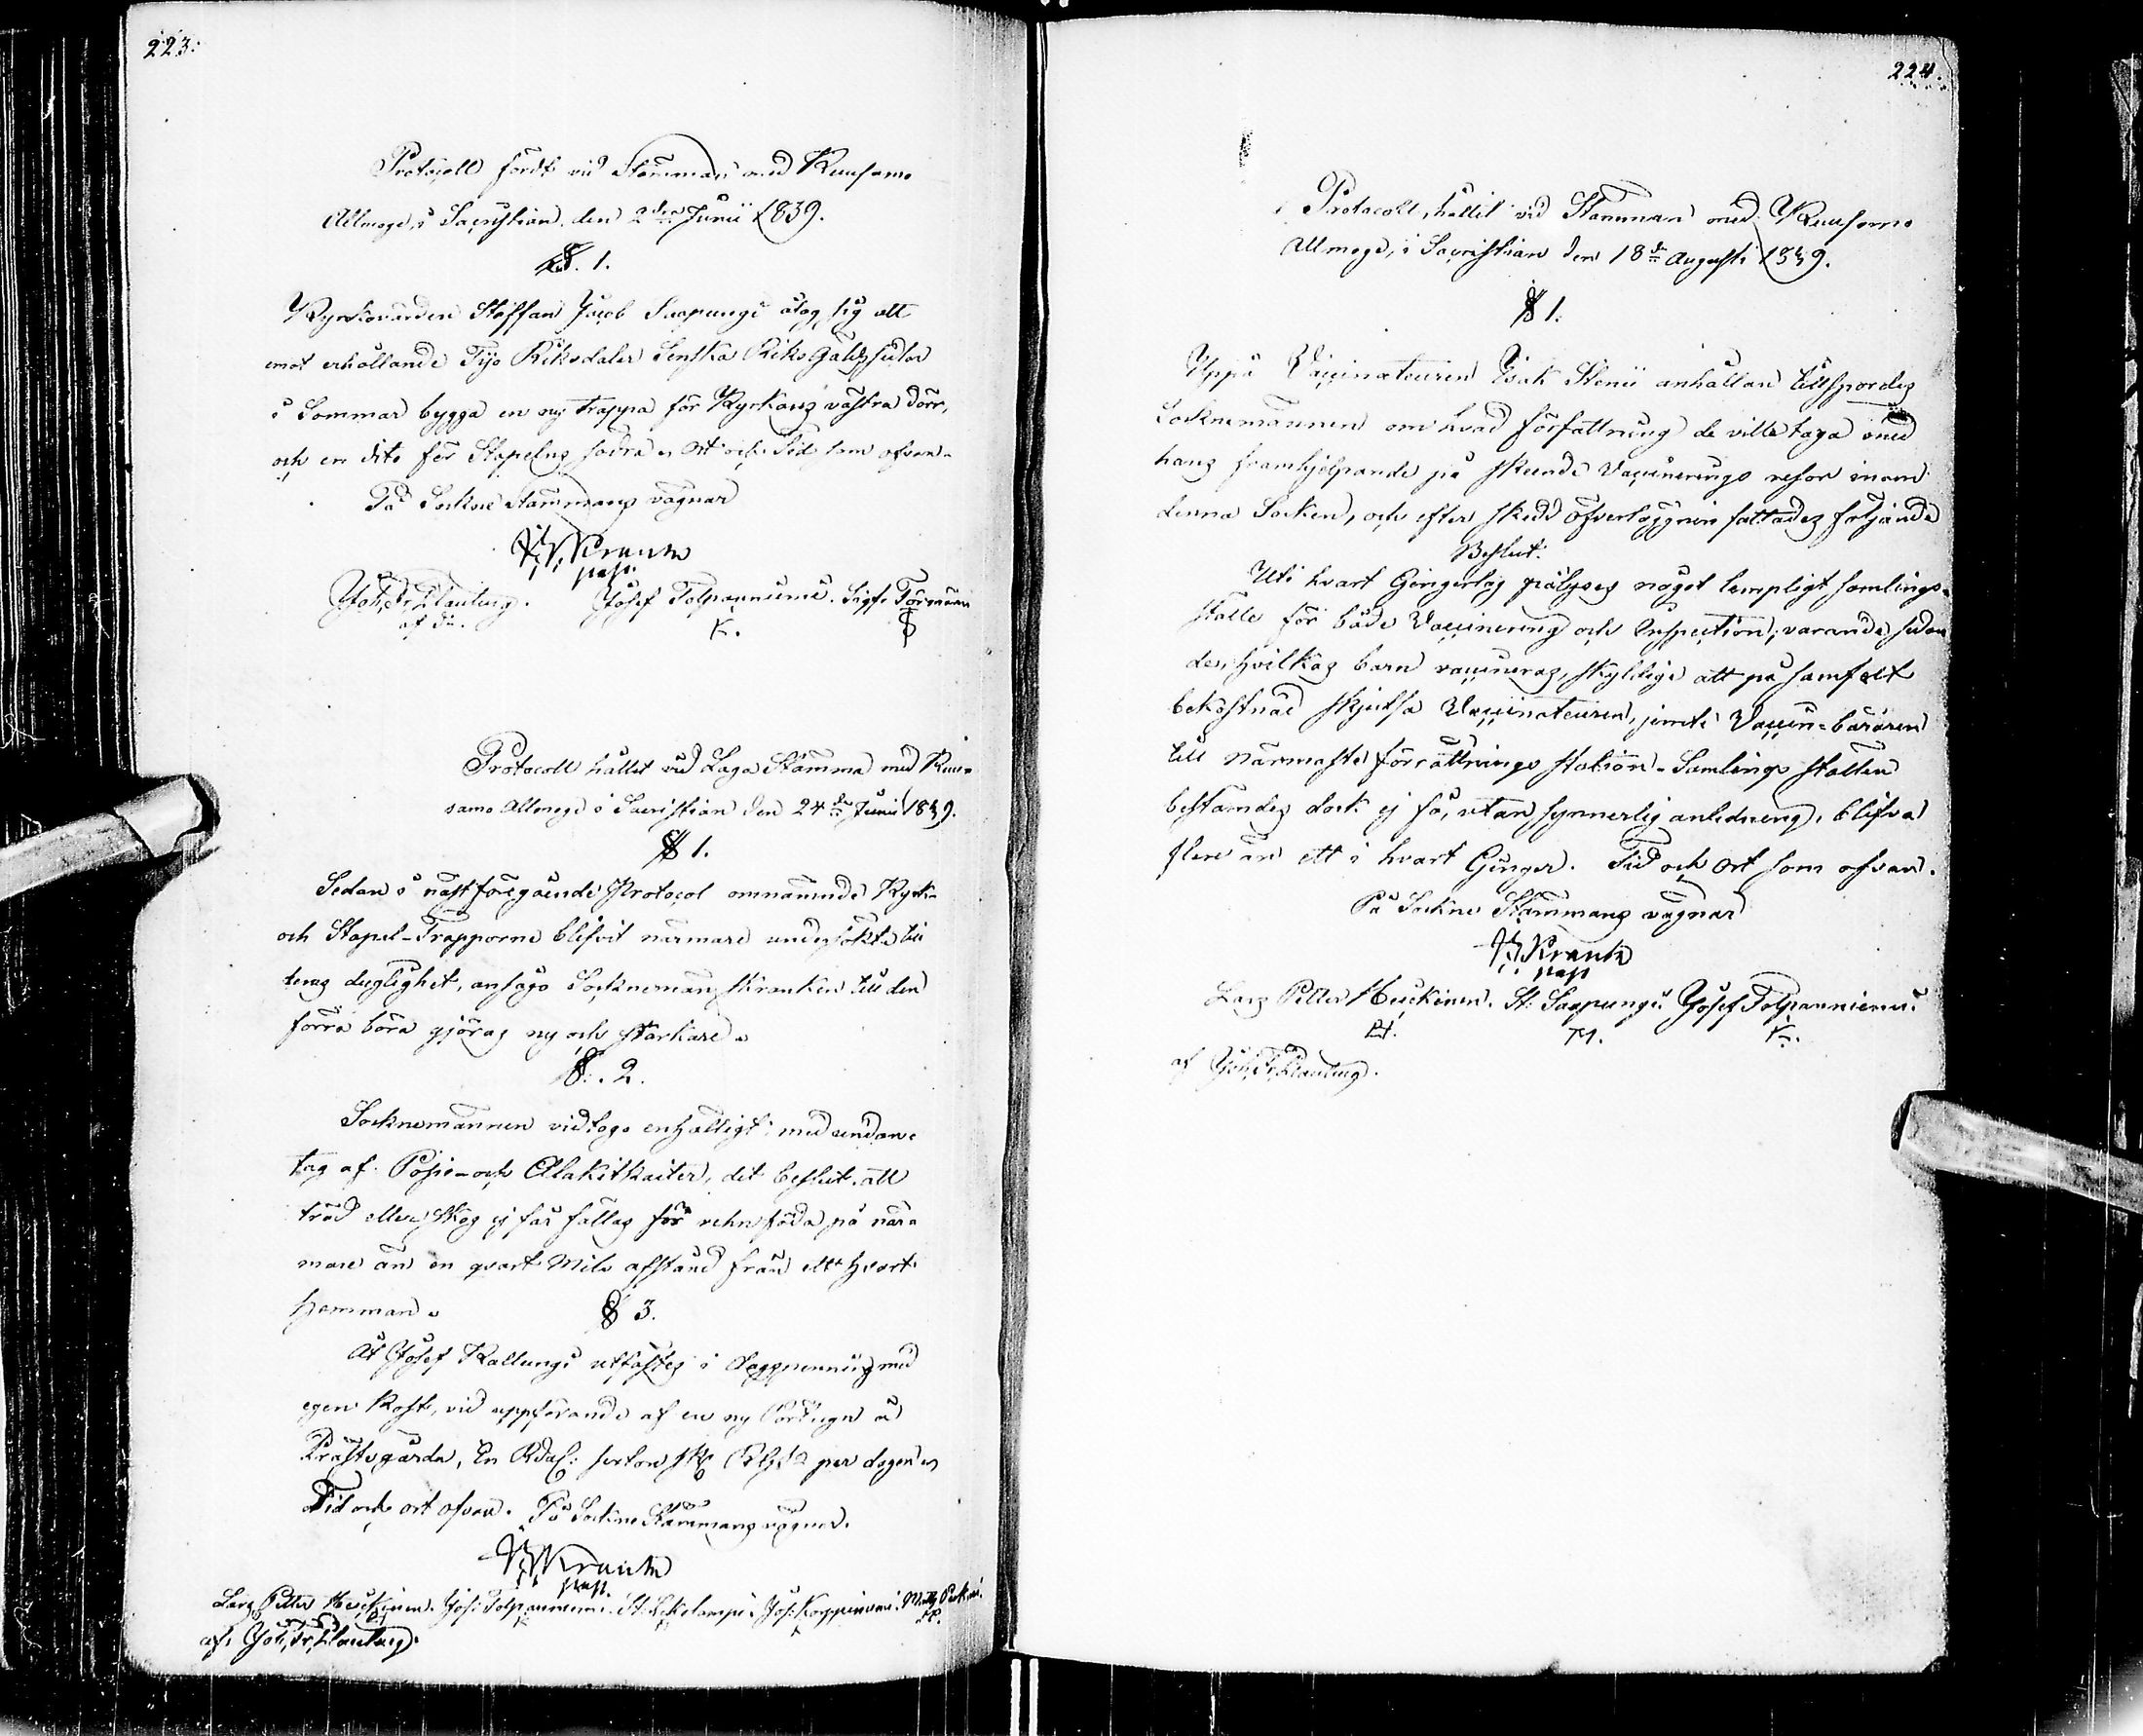 223.
Protocoll fördt vid Stämman med Kuusamo
Allmoge, i Sacristian, den 2den Junii 1839.
§. 1.
Kyrkovärden Staffan Jacob Saapungi åtog sig att
emot erhållande Tijo Riksdaler Svenska Riks Gäldz sedlar
i Sommar bygga en ny trappa för Kyrkans västra dörr,
och en dito för Stapelns södra. Ort och Tid som ofvan.
På Sockne Stämmans vägnar
Krank
past.
Joh, Fr, Planting. Josef Tolpanniemi. Sigfr. Törmänen
af Dn. K.
Protocoll hållit vid Laga Stämma med Kuu-
samo Allmoge i Sacristian den 24de Junii 1839.
§ 1.
Sedan i nästföregående Protocol omnämnde Kyrk-
och Stapel-Trapporne blifvit närmare undersökte till
deras duglighet, ansågo Socknemän Skranken till den
förra böra gjöras ny och starkare.
§. 2.
Socknemännen vidtogo enhälligt, med undan-
tag af Posio- och Alakitkaiter, det beslut, att
träd eller skog ej får fällas för rehnföda på när-
mare än en qvart Mils afstånd från ett hvart
hemman. § 3.
Åt Josef Kallungi utfästes i dagspenning med
egen Kost, vid uppförande af en ny Bordugn å
Prästgården, En Rdal: sexton sk per dagen.
Tid och ort ofvan. På Sockne Stämmans vägnar.
Krank
past.
Lars Petter Heickinen. Jos: Tolpanniemi. St: Lekilampi. Jos: Korppiniemi. Matts
af, Joh, Fr, Planting.
224.
Protocoll, hållit vid Stämman med Kuusamo
Allmoge, i Sacristian den 18de Augusti 1839.
§ 1.
Uppå Vaccinateuren Isak Stenii anhållan tillspordes
Socknemännen om hvad författning de ville taga med
hans framhjelpande på skeende Vaccinerings resor inom
denna Socken, och efter skedd öfverläggnin fattades följande
Beslut:
Uti hvart Gingerlag pålyses något lämpligt samlings-
ställe för både Vaccinering och Inspection; varande sedan
de, hvilkas barn vaccineras, skyldige att på samfält
bekostnad skjutsa Vaccinateuren, jemte Vaccin-bäraren
till närmaste förrättnings station. Samlings ställen
bestämdes dock ej få, utan synnerlig anledning, blifva
flere än ett i hvart Ginger. Tid och Ort som ofvan.
På Sockne Stämmans vägnar
Krank
past
Lars Petter Heickinen. St: Saapungi. Josef Tolpanniemi.
K.
af Joh, Fr, Planting.